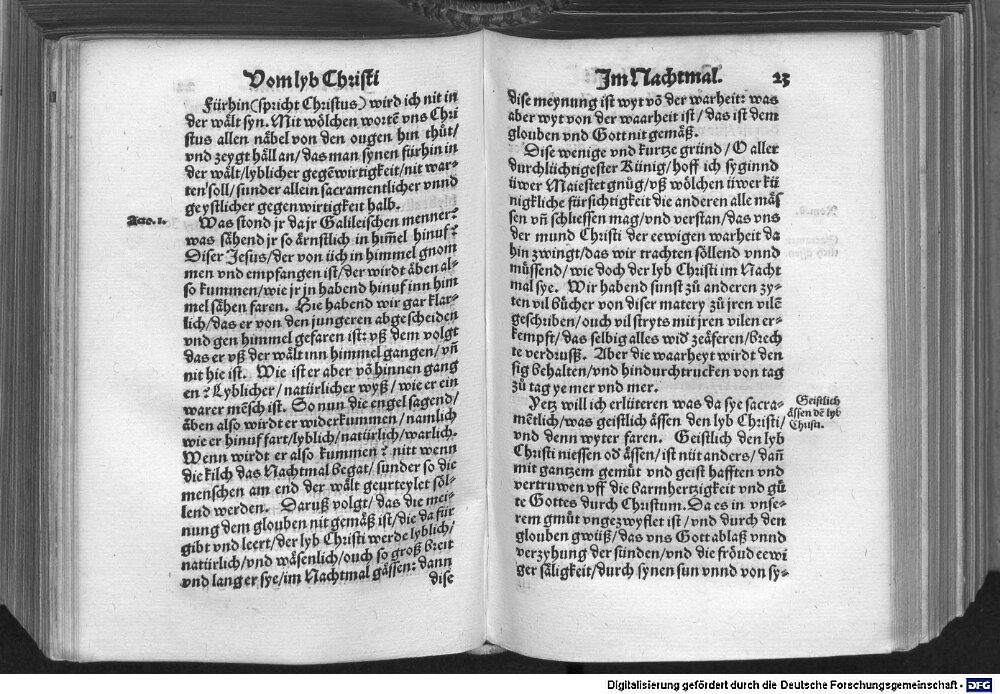 Vom lyb Christi
Fürhin (spricht Christus) wird ich nit in
der wält syn. Mit wölchen wortẽ vns Chri
stus allen näbel von den ougen hin thůt/
vnd zeygt häll an/ das man synen fürhin in
der wält/ lyblicher gegẽwirtigkeit/ nit war-
ten soll/ sunder allein sacramentlicher vnnd
geystlicher gegenwirtigkeit halb.
Acto. 1.
Was stond jr da jr Galileischen menner?
was sähend jr so ärnstlich in him̃el hinuf?
Diser Jesus/ der von üch in himmel gnom
men vnd empfangen ist/ der wirdt äben al-
so kummen/ wie jr jn habend hinuf inn him
mel sähen faren. Hie habend wir gar klar-
lich/ das er von den jungeren abgescheiden
vnd gen himmel gefaren ist: vß dem volgt
das er vß der wält inn himmel gangen/ vñ
nit hie ist. Wie ist er aber võ hinnen gang
en? Lyblicher/ natürlicher wyß/ wie er ein
warer mẽsch ist. So nun die engel sagend/
äben also wirdt er widerkummen/ namlich
wie er hinuf fart/ lyblich/ natürlich/ warlich.
Wenn wirdt er also kummen? nitt wenn
die kilch das Nachtmal begat/ sunder so die
menschen am end der wält geurteylet söl-
lend werden. Daruß volgt/ das die mei-
nung dem glouben nit gemäß ist/ die da für
gibt vnd leert/ der lyb Christi werde lyblich/
natürlich/ vnd wäsenlich/ ouch so groß breit
vnd lang er sye/ im Nachtmal gässen: dann
dise
Im Nachtmal. 23
dise meynung ist wyt võ der warheit: was
aber wyt von der waarheit ist/ das ist dem
glouben vnd Gott nit gemäß.
Dise wenige vnd kurtze gründ/ O aller
durchlüchtigester Künig/ hoff ich sy ginnd
üwer Maiestet gnůg/ vß wölchen üwer kü
nigkliche fürsichtigkeit die anderen alle mäs
sen vñ schliessen mag/ vnd verstan/ das vns
der mund Christi der eewigen warheit da
hin zwingt/ das wir trachten söllend vnnd
müssend/ wie doch der lyb Christi im Nacht
mal sye. Wir habend sunst zů anderen zy-
ten vil bücher von diser matery zů jren vilẽ
geschriben/ ouch vil stryts mit jren vilen er-
kempft/ das selbig alles wid zeäferen/ brech
te verdruß. Aber die waarheyt wirdt den
sig behalten/ vnd hindurchtrucken von tag
zů tag ye mer vnd mer.
Yetz will ich erlüteren was da sye sacra-
mẽtlich/ was geistlich ässen den lyb Christi/
vnd denn wyter faren. Geistlich den lyb
Christi niessen od ässen/ ist nüt anders/ dañ
mit gantzem gemüt vnd geist hafften vnd
vertruwen vff die barmhertzigkeit vnd gů
te Gottes durch Christum. Da es in vnse-
rem gmüt vngezwyflet ist/ vnd durch den
glouben gwüß/ das vns Gott ablaß vnnd
verzyhung der sünden/ vnd die fröud eewi
ger säligkeit/ durch synen sun vnnd von sy-
Geistlich
ässen dẽ lyb
Christi.
Digitalisierung gefördert durch die Deutsche Forschungsgemeinschaft - DFG